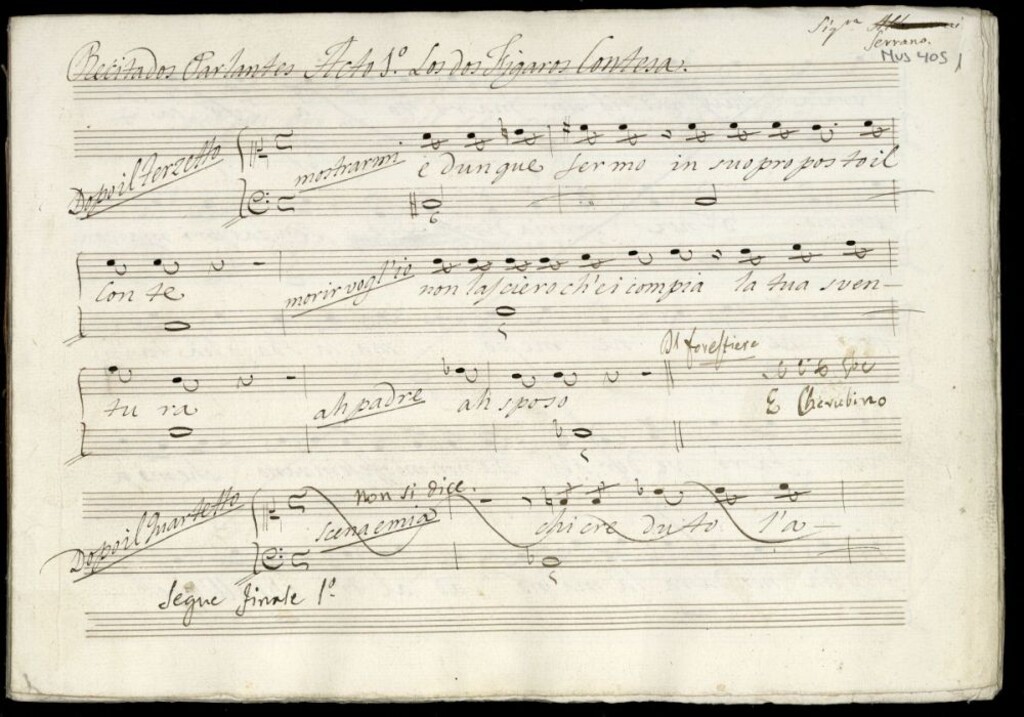 Sig.ra
Serrano.
MUS 405
Recitados Parlantes Acto 1º. Los dos Figaros Contesa.
Dopo il terzetto
mostrarmi e dunque fermo in suo proposto il
Conte morir vogl'io non lasciero ch'ei compia la tua sven-
tura ah padre ah sposo
Il forestiere
E Cherubino
Dopo il Quartetto
Non si dice.
scena e mia chi creduto l'a-
Segue finale 1º.